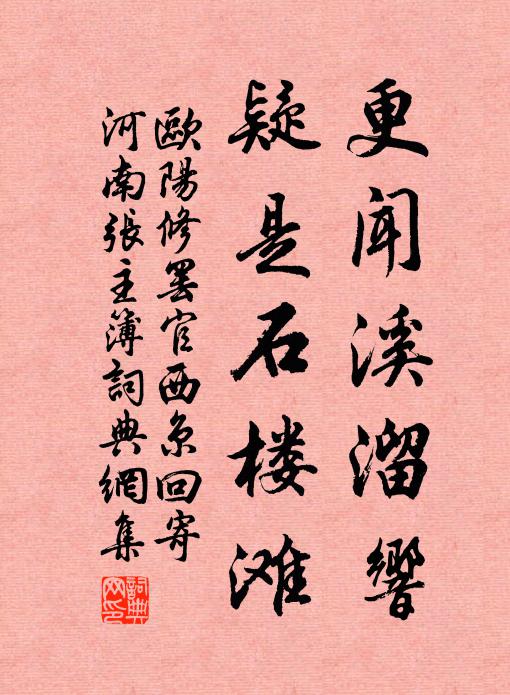 更闻溪溜響
疑是石楼滩
歐陽修罢官西京回寄
河南張主簿詞典網集
詞典網印